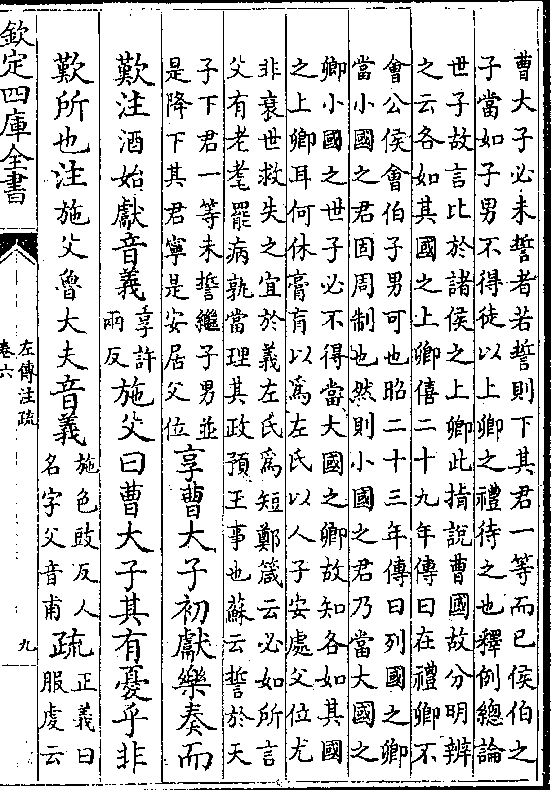 曹大子必未誓者若誓則下其君一等而已侯伯之
子當如子男不得徒以上卿之禮待之也釋例總論
世子故言比於諸侯之上卿此指說曹國故分明辨
之云各如其國之上卿僖二十九年傳曰在禮卿不
會公侯會伯子男可也昭二十三年傳曰列國之卿
當小國之君固周制也然則小國之君乃當大國之
卿小國之世子必不得當大國之卿故知各如其國
之上卿耳何休膏肓以爲左氏以人子安處父位尤
非衰世救失之宜於義左氏爲短鄭箴云必如所言
父有老耄罷病孰當理其政預王事也蘇云誓於天
子下君一等未誓繼子男並
是降下其君寧是安居父位
享曹大子初獻樂奏而
歎注酒始獻音義
享許
兩反
施父曰曹大子其有憂乎非
歎所也注施父魯大夫音義
施色豉反人
名字父音甫
疏
正義曰
服虔云
欽定四庫全書
左傳注疏
卷六
九